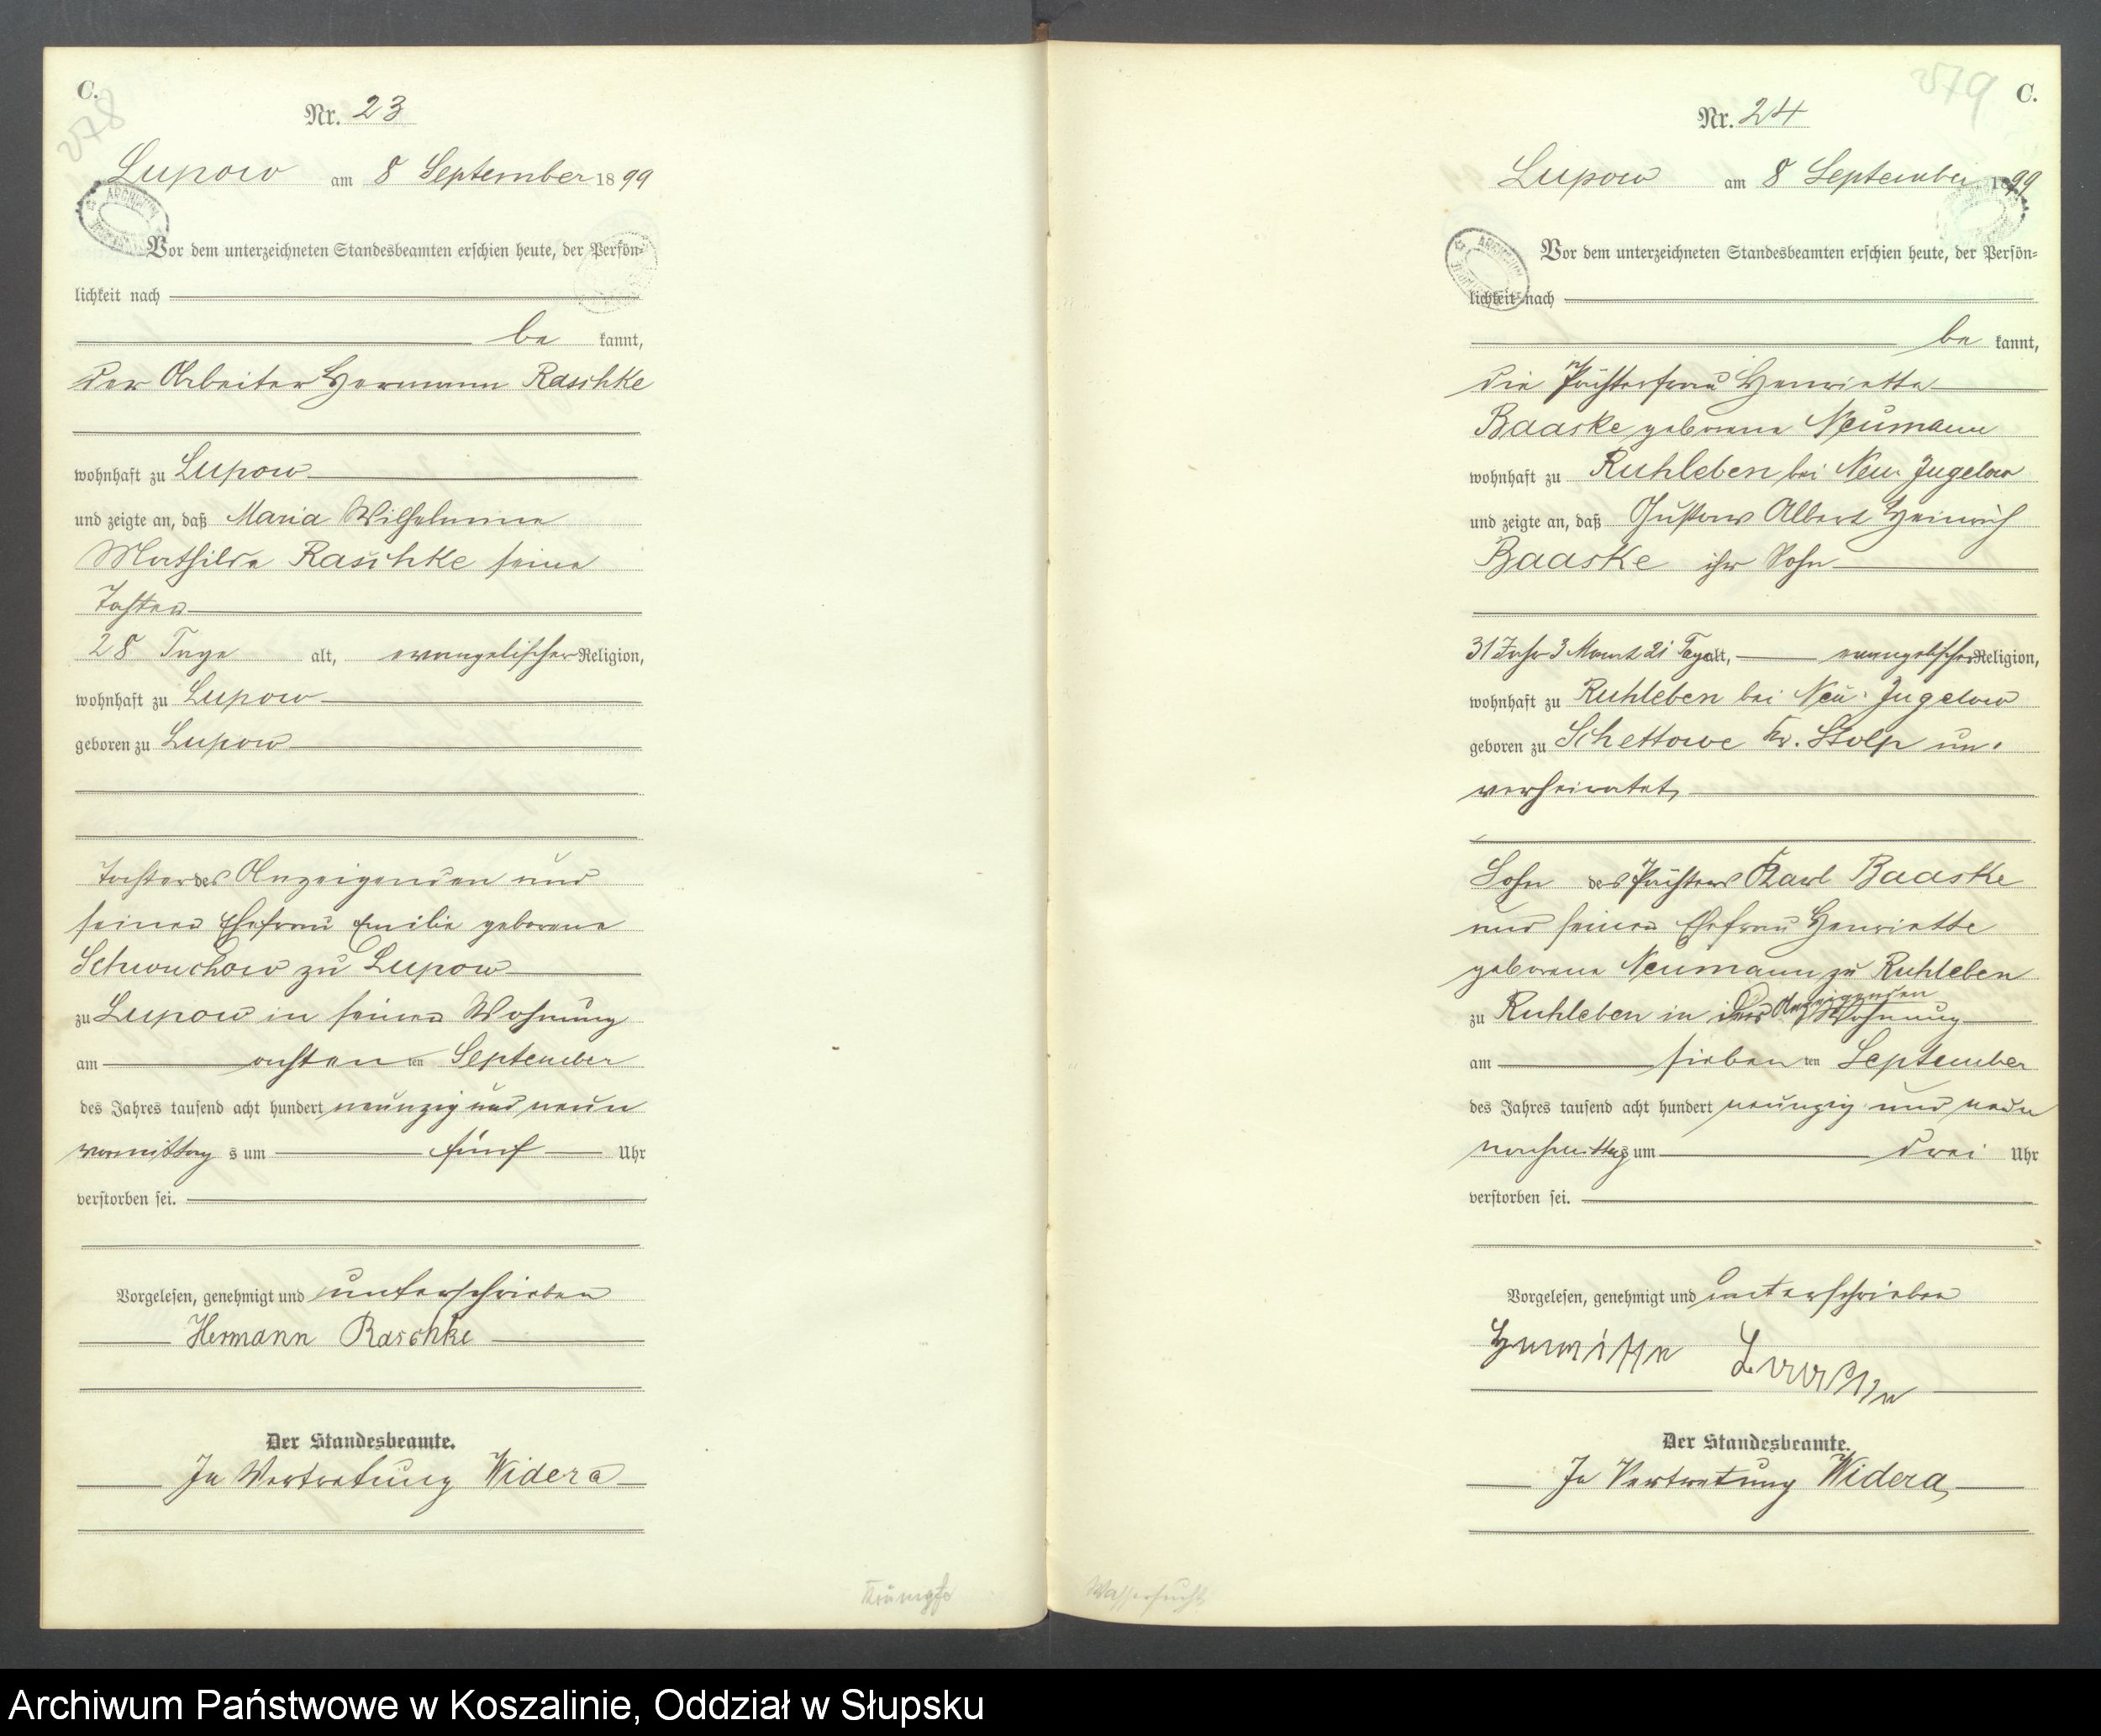 C.
278
Nr. 23
Lupow am 8 September 1899
ARCHIWUM
Vor dem unterzeichneten Standesbeamten erschien heute, der Persön-
lichkeit nach
be kannt,
der Arbeiter Hermann Raschke
wohnhaft zu Lupow
und zeigte an, daß Maria Wilhelmine
Mathilde Raschke seine
Tochter
28 Tage alt, evangelischer Religion,
wohnhaft zu Lupow
geboren zu Lupow
Tochter des Anzeigenden und
seiner Ehefrau Emilie geborene
Schwuchow zu Lupow
zu Lupow in seiner Wohnung
am achten ten September
des Jahres tausend acht hundert neunzig und neun
vormittag s um fünf Uhr
verstorben sei.
Vorgelesen, genehmigt und unterschrieben
Hermann Raschke
Der Standesbeamte.
In Vertretung Widera
Krämpfe
C.
279
Nr. 24
Lupow am 8 September 1899
ARCHIWUM
Vor dem unterzeichneten Standesbeamten erschien heute, der Persön-
lichkeit nach
be kannt,
die Pächterfrau Henriette
Baaske geborene Neumann
wohnhaft zu Ruhleben bei Neu-Jugelow
und zeigte an, daß Gustav Albert Heinrich
Baaske ihr Sohn
31 Jahr 3 Monat 21 Tage alt, evangelischer Religion,
wohnhaft zu Ruhleben bei Neu-Jugelow
geboren zu Schottowe Kr. Stolp un-
verheiratet
Sohn des Pächters Karl Baaske
und seiner Ehefrau Henriette
geborene Neumann zu Ruhleben
zu Ruhleben in der Anzeigenden Wohnung
am sieben ten September
des Jahres tausend acht hundert neunzig und neun
nachmittags um drei Uhr
verstorben sei.
Vorgelesen, genehmigt und unterschrieben
Henriette Baaske
Der Standesbeamte.
In Vertretung Widera
Wassersucht
Archiwum Państwowe w Koszalinie, Oddział w Słupsku